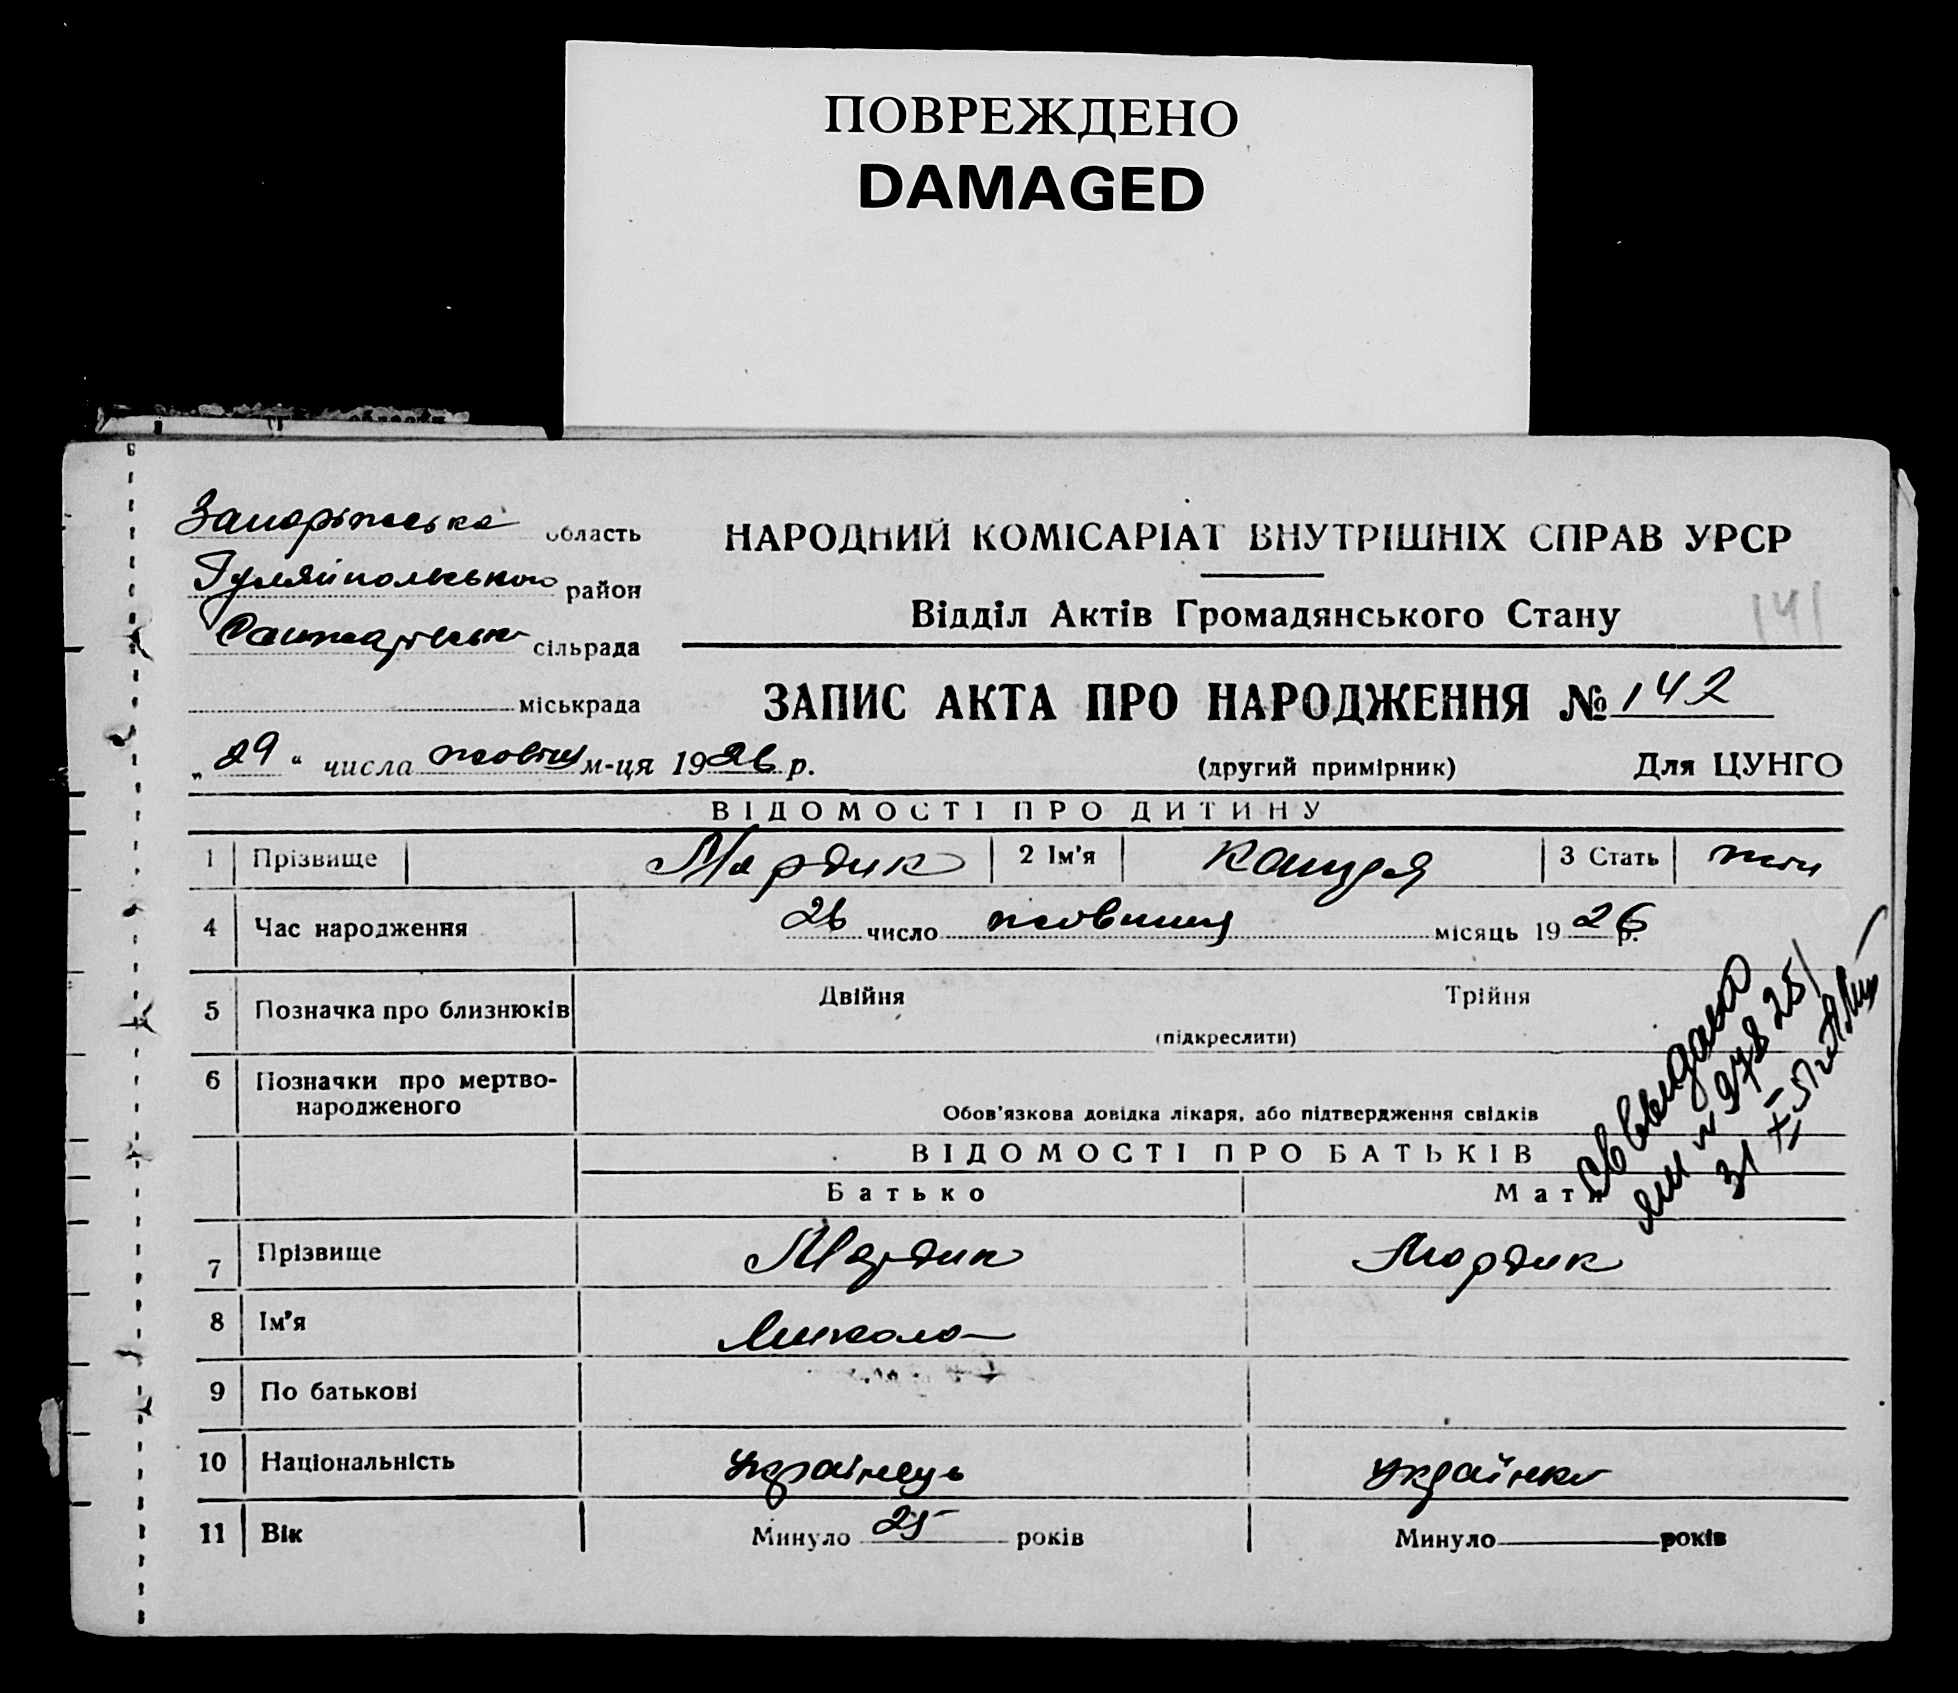 ПОВРЕЖДЕНО
DAMAGED
Запорізька область
Гуляйпольського район
сільрада
міськрада
НАРОДНИЙ КОМІСАРІАТ ВНУТРІШНІХ СПРАВ УРСР
Відділ Актів Громадянського Стану
141
ЗАПИС АКТА ПРО НАРОДЖЕННЯ № 142
„29“ числа жовтня м-ця 1926 р.
(другий примірник) Для ЦУНГО
ВІДОМОСТІ ПРО ДИТИНУ
1 Прізвище Мардик 2 Ім'я 3 Стать жін
4 Час народження 26 число жовтня місяць 1926 р.
5 Позначка про близнюків Двійня Трійня
(підкреслити)
6 Позначки про мертво-
народженого
Обов'язкова довідка лікаря, або підтвердження свідків
ВІДОМОСТІ ПРО БАТЬКІВ
Батько Мати
7 Прізвище Мардик Мардик
8 Ім'я Микола
9 По батькові
10 Національність Українець Українка
11 Вік Минуло 25 років Минуло років